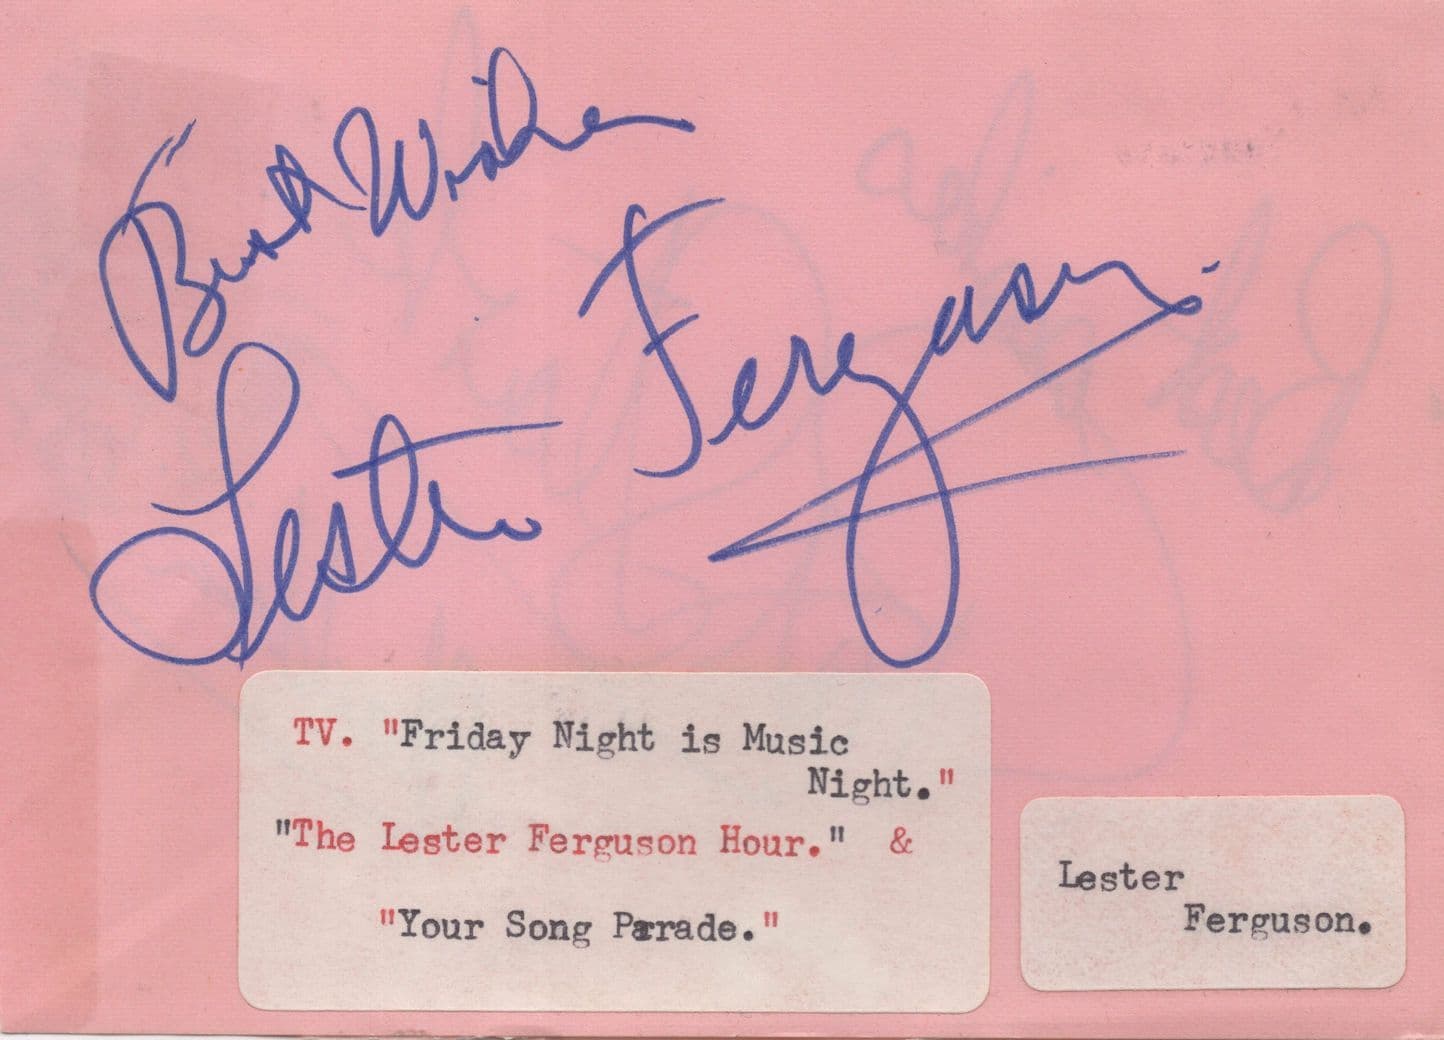 Best Wishes
Lester Ferguson.
TV. "Friday Night is Music
Night."
"The Lester Ferguson Hour." &
"Your Song Parade."
Lester
Ferguson.